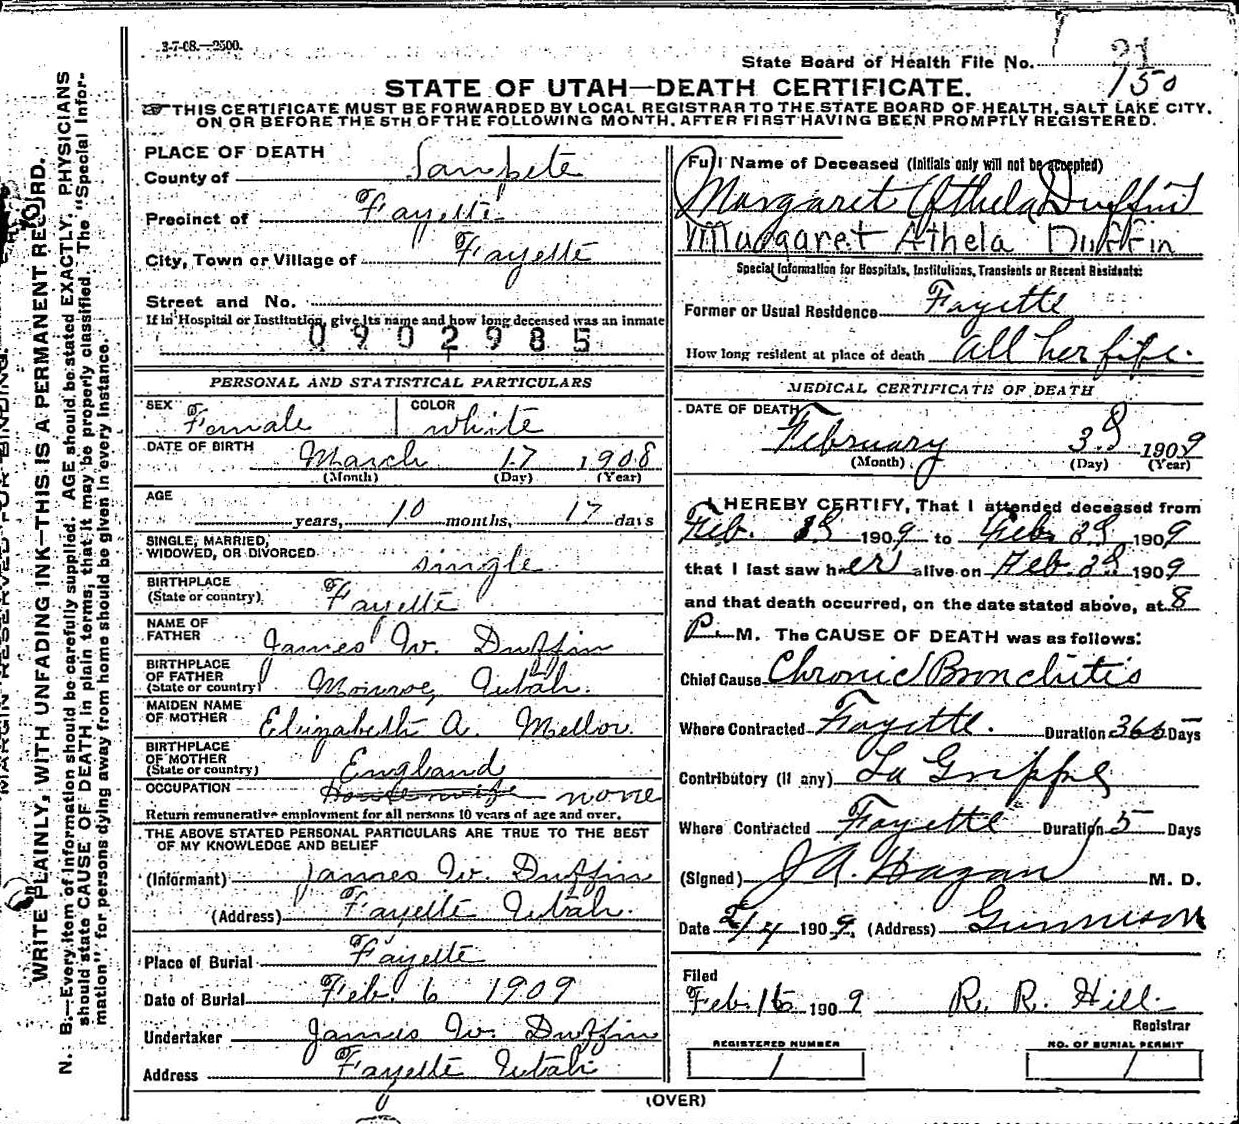 3-7-08.—2500.
State Board of Health File No. 21
150
STATE OF UTAH—DEATH CERTIFICATE.
THIS CERTIFICATE MUST BE FORWARDED BY LOCAL REGISTRAR TO THE STATE BOARD OF HEALTH, SALT LAKE CITY,
ON OR BEFORE THE 5TH OF THE FOLLOWING MONTH, AFTER FIRST HAVING BEEN PROMPTLY REGISTERED.
MARGIN RESERVED FOR BINDING.
WRITE PLAINLY, WITH UNFADING INK—THIS IS A PERMANENT RECORD.
N. B.—Every item of information should be carefully supplied. AGE should be stated EXACTLY. PHYSICIANS
should state CAUSE OF DEATH in plain terms, that it may be properly classified. The "Special Infor-
mation" for persons dying away from home should be given in every instance.
PLACE OF DEATH
County of Sanpete
Precinct of Fayette
City, Town or Village of Fayette
Street and No.
If in Hospital or Institution, give its name and how long deceased was an inmate
0902985
PERSONAL AND STATISTICAL PARTICULARS
SEX Female COLOR white
DATE OF BIRTH March 17 1908
(Month) (Day) (Year)
AGE
years, 10 months, 17 days
SINGLE, MARRIED,
WIDOWED, OR DIVORCED single
BIRTHPLACE
(State or country) Fayette
NAME OF
FATHER James W. Duffin
BIRTHPLACE
OF FATHER
(State or country) Monroe, Utah.
MAIDEN NAME
OF MOTHER Elizabeth A. Mellor
BIRTHPLACE
OF MOTHER
(State or country) England
OCCUPATION Housewife none
Return remunerative employment for all persons 10 years of age and over.
THE ABOVE STATED PERSONAL PARTICULARS ARE TRUE TO THE BEST
OF MY KNOWLEDGE AND BELIEF
(Informant) James W. Duffin
(Address) Fayette Utah.
Place of Burial Fayette
Date of Burial Feb. 6 1909
Undertaker James W. Duffin
Address Fayette Utah
Full Name of Deceased (Initials only will not be accepted)
Margaret Athela Duffin
Margaret Athela Duffin
Special Information for Hospitals, Institutions, Transients or Recent Residents:
Former or Usual Residence Fayette
How long resident at place of death All her life.
MEDICAL CERTIFICATE OF DEATH
DATE OF DEATH
February 3d 1909
(Month) (Day) (Year)
I HEREBY CERTIFY, That I attended deceased from
Feb. 1909 to Feb. 3d 1909
that I last saw her alive on Feb. 1909
and that death occurred, on the date stated above, at 8
P. M. The CAUSE OF DEATH was as follows:
Chief Cause Chronic Bronchitis
Where Contracted Fayette. Duration Days
Contributory (if any) La Grippe
Where Contracted Fayette Duration 5 Days
(Signed) J A. Hagan M. D.
Date 2/4 1909. (Address) Gunnison
Filed
Feb. 1909 R. R. Hill
Registrar
REGISTERED NUMBER
1
NO. OF BURIAL PERMIT
1
(OVER)